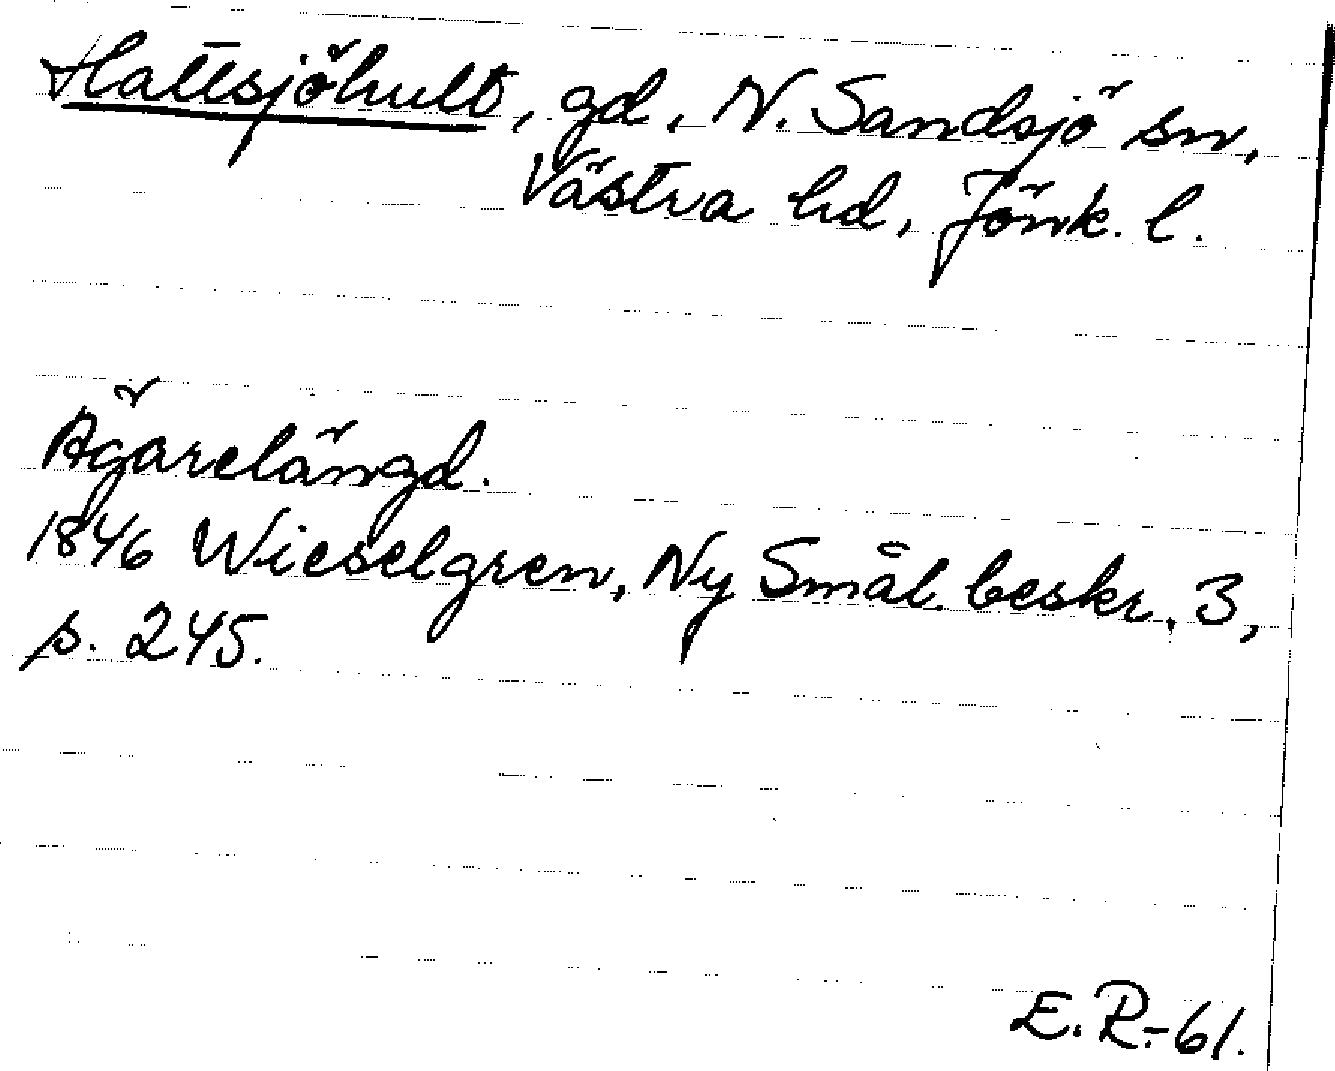 Hattsjöhult, gd, N. Sandsjö sn,
Västra hd, Jönk. l.
Ägarelängd.
1846 Wieselgren, Ny Smål. beskr. 3,
s. 245.
E.R.-61.